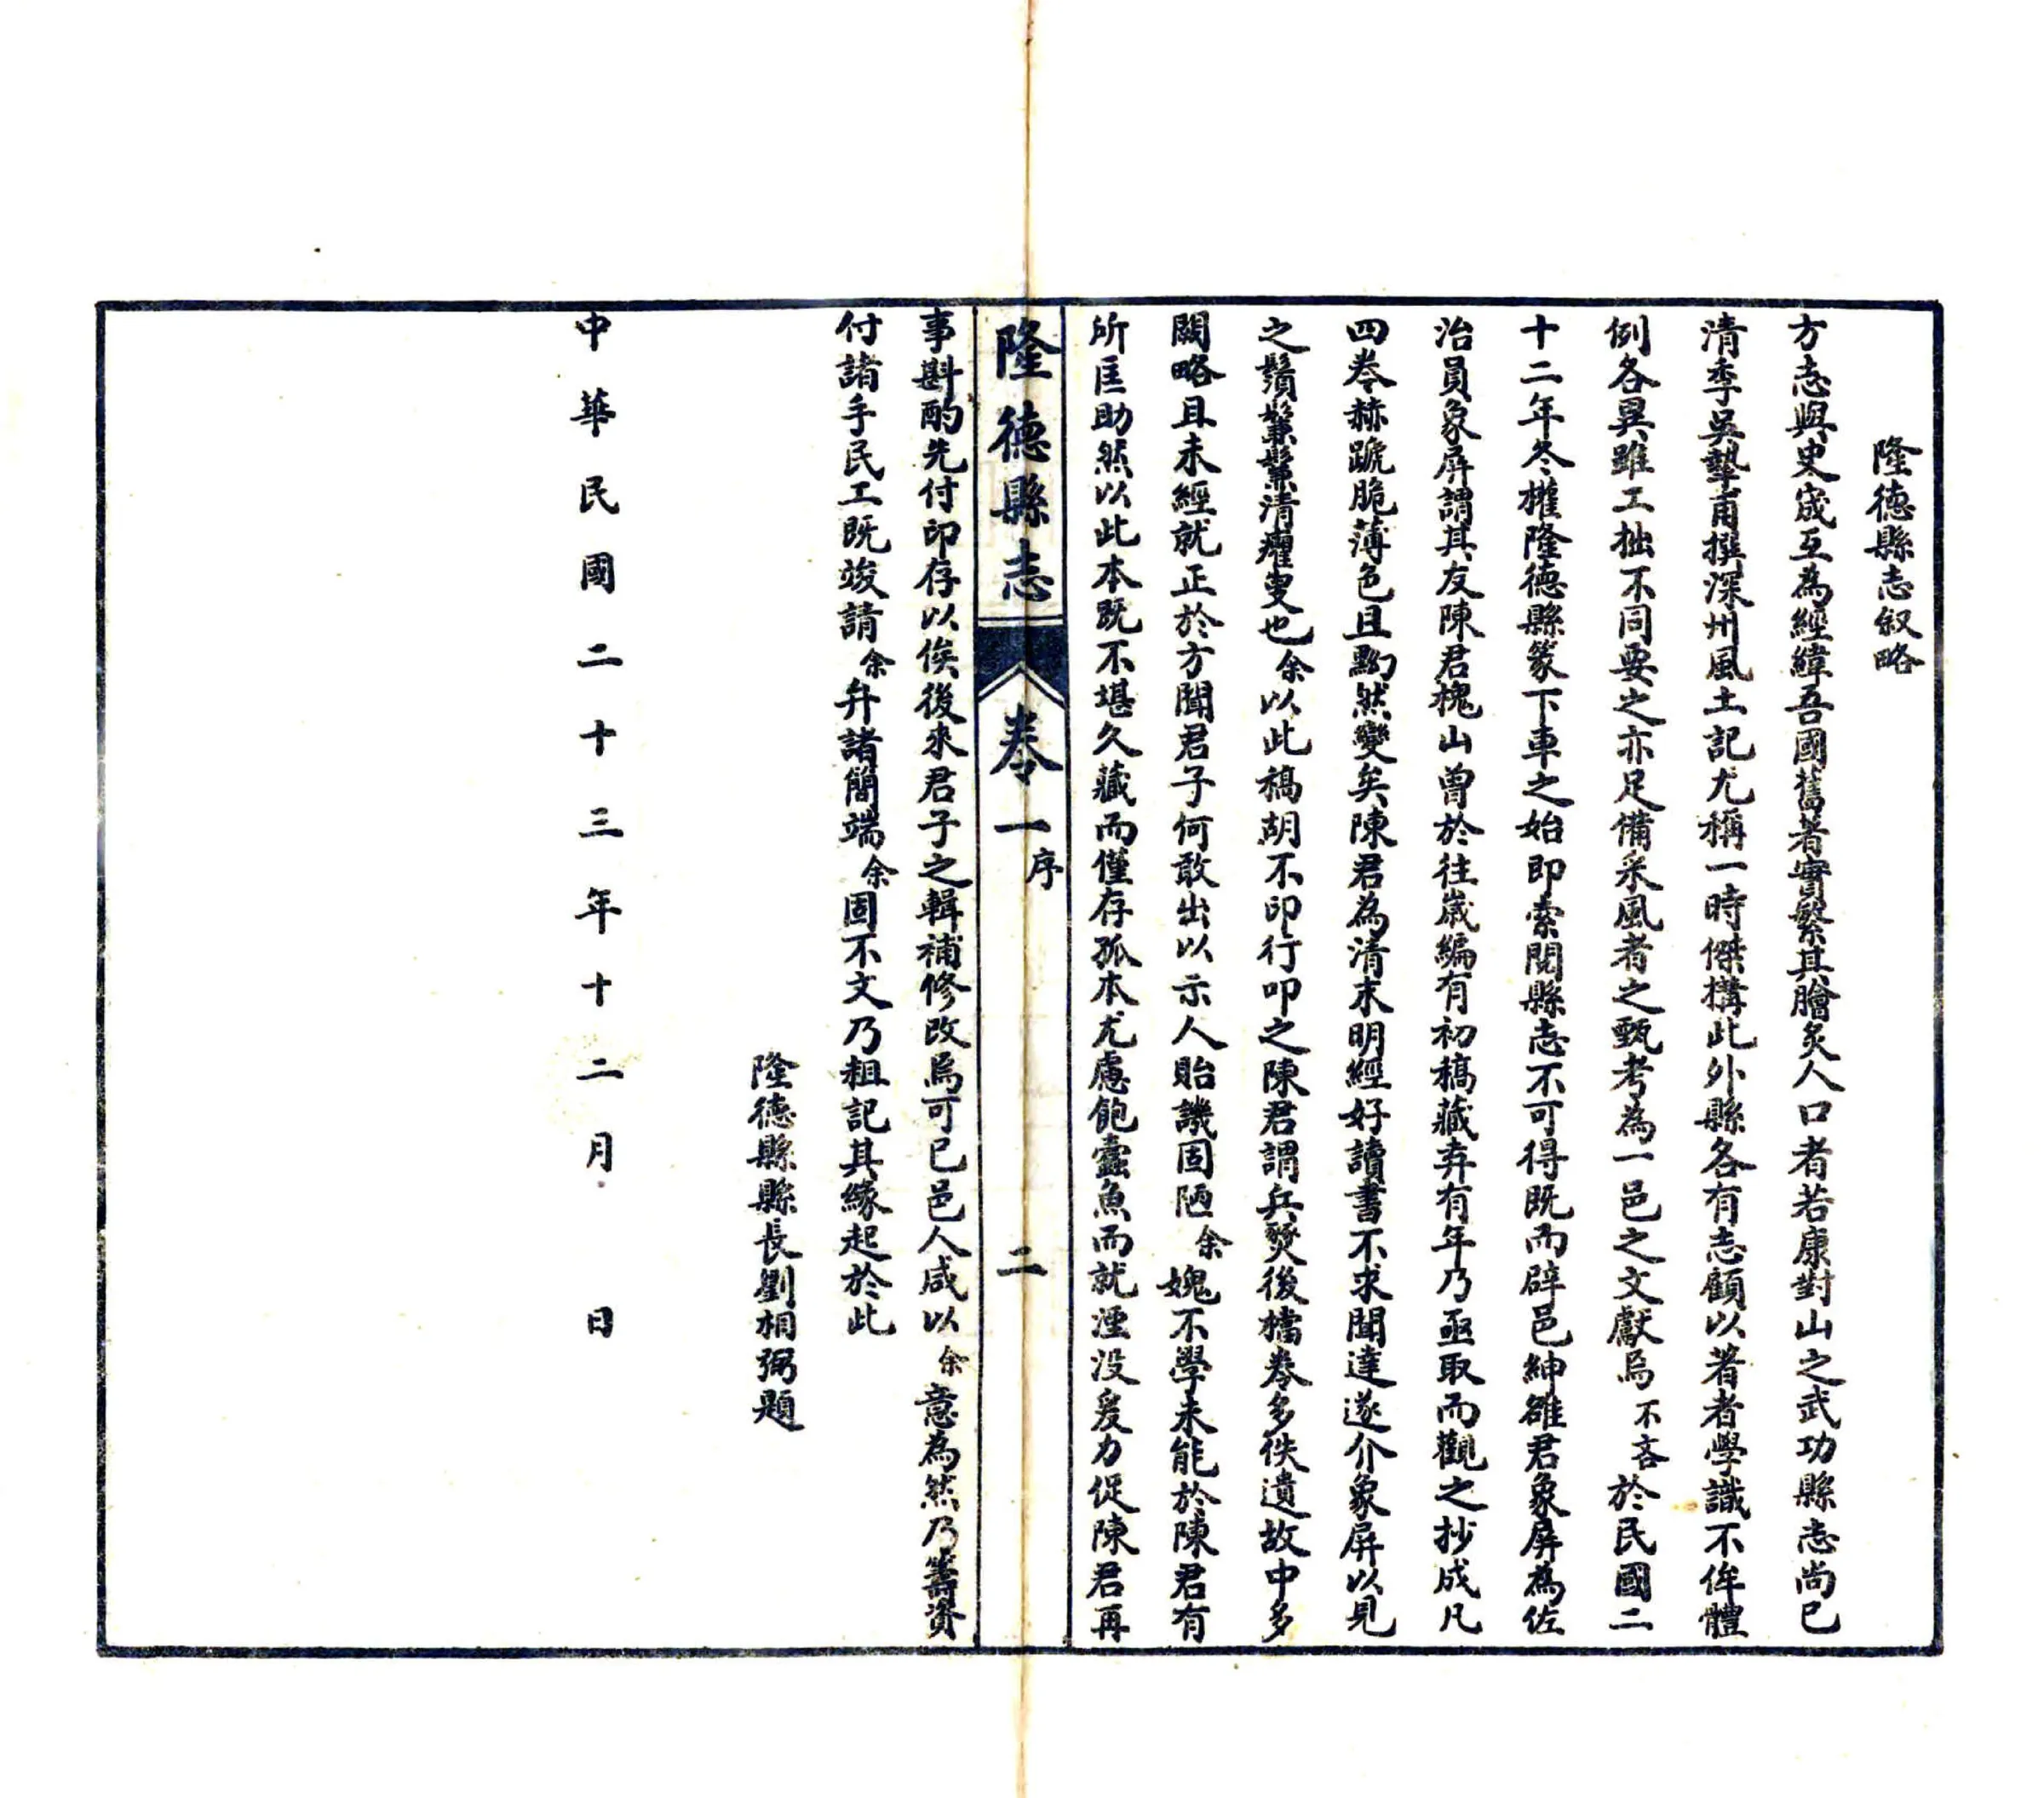 隆德縣志叙略
方志與史宬互為經緯吾國舊著實繁其膾炙人口者若康對山之武功縣志尚已
清季吳摯甫撰深州風土記尤稱一時傑構此外縣各有志顧以著者學識不侔體
例各異雖工拙不同要之亦足備采風者之甄考為一邑之文獻焉不吝於民國二
十二年冬權隆德縣篆下車之始即索閱縣志不可得既而辟邑紳雒君象屏為佐
治員象屏謂其友陳君槐山曾於往歲編有初稿藏弆有年乃亟取而觀之抄成凡
四卷赫蹏脆薄色且黝然變矣陳君為清末明經好讀書不求聞達遂介象屏以見
之鬚鬢鬑清癯叟也余以此稿胡不印行叩之陳君謂兵燹後檔卷多佚遺故中多
闕略且未經就正於方聞君子何敢出以示人貽譏固陋余媿不學未能於陳君有
所匡助然以此本既不堪久藏而僅存孤本尤慮飽蠹魚而就湮没爰力促陳君再
隆德縣志
卷一
序
二
事斟酌先付印存以俟後來君子之輯補修改焉可已邑人咸以余意為然乃籌資
付諸手民工既竣請余弁諸簡端余固不文乃粗記其緣起於此
隆德縣縣長劉相弼題
中華民國二十三年十二月　日